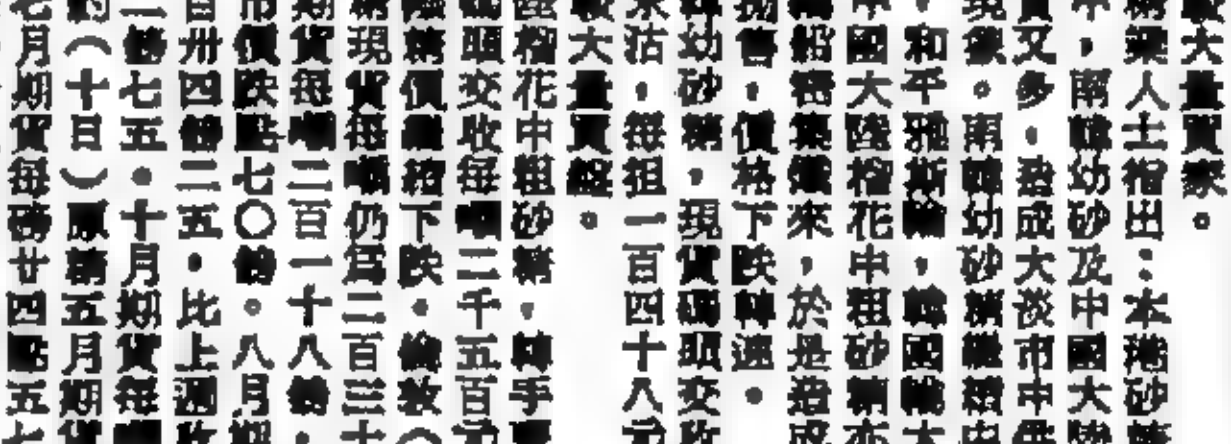 大量買家。
業人士指出：本港砂糖
中，南韓幼砂及中國大陸
貨又多，造成大淡市中
現象。南韓幼砂糖繼續由
，和平雅斯輪，韓國輪
中國大陸榴花中粗砂糖亦
船務業儎來，於是造成
拋售，價格下跌轉速。
幼砂糖，現貨碼頭交收
來沽，每担一百四十八元
大量買盤。
陸榴花中粗砂糖，轉手
碼頭交收每噸二千五百元
糖價繼續下跌。倫敦（
糖現貨每噸仍爲二百三十
期貨每噸二百一十八鎊．
市價跌點七〇鎊。八月期
百卅四鎊二五．比上週收
一鎊七五．十月期貨每噸
的（十日）原糖五月期貨
七月期貨每磅廿四點五七